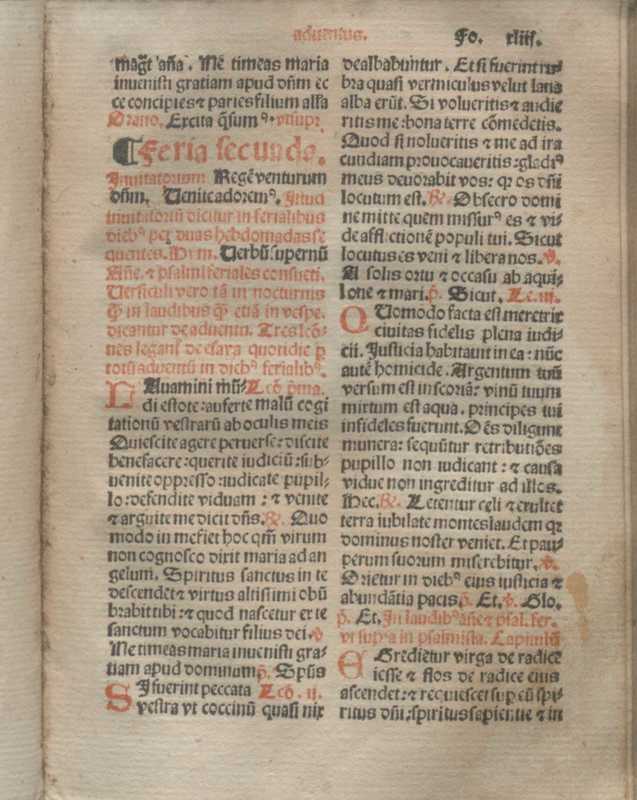 aduentus. Fo. xliij.
magt᷑ aña. Ne timeas maria
inuenisti gratiam apud dñm ec
ce concipies ⁊ paries filium alla
Oratio. Excita q̄sum⁹. vt supr̄
¶Feria secunda.
Inuitatorium Regē venturum
dñm. Uenite adorem⁹. Istud
inuitatoriū dicitur in ferialibus
dieb⁹ per duas hebdomadas se
quentes. Hym. Uerbū supernū
Añe. ⁊ psalmi feriales consueti.
Uersiculi vero tā in nocturnis
q̄ in laudibus q̄ etiā in vespe.
dicantur de aduentu. Tres lcō-
nes legant᷑ de esaya quotidie p
totū aduentū in dieb⁹ ferialib⁹.
LAuamini mū- Lcō p̄ma.
di estote: auferte malū cogi
tationū vestrarū ab oculis meis
Quiescite agere peruerse: discite
benefacere: querite iudiciū: sub-
uenite oppresso: iudicate pupil-
lo: defendite viduam: ⁊ venite
⁊ arguite me dicit dñs. ℞. Quo
modo in me fiet hoc qm̄ virum
non cognosco dixit maria ad an
gelum. Spiritus sanctus in te
descendet ⁊ virtus altissimi obū
brabit tibi: ⁊ quod nascetur ex te
sanctum vocabitur filius dei. ℣
Ne timeas maria inuenisti gra-
tiam apud dominum p̄. Spūs
SI fuerint peccata Lcō. ij.
vestra vt coccinū quasi nix
dealbabuntur. Et si fuerint ru-
bra quasi vermiculus velut lana
alba erūt. Si volueritis ⁊ audie
ritis me: bona terre cōmedetis.
Quod si nolueritis ⁊ me ad ira
cundiam prouocaueritis: gladi⁹
meus deuorabit vos: qr os dñi
locutum est. ℞. Obsecro domi
ne mitte quem missur⁹ es ⁊ vi-
de afflictionē populi tui. Sicut
locutus es veni ⁊ libera nos. ℣.
A solis ortu ⁊ occasu ab aqui-
lone ⁊ mari. p̄. Sicut. Lc. iij.
QUomodo facta est meretrix
ciuitas fidelis plena iudi-
cii. Justicia habitauit in ea: nūc
autē homicide. Argentum tuū
versum est in scoriā: vinū tuum
mixtum est aqua. principes tui
infideles fuerunt. Oēs diligunt
munera: sequūtur retributiōes
pupillo non iudicant: ⁊ causa
vidue non ingreditur ad illos.
Hec. ℞. Letentur celi ⁊ exultet
terra iubilate montes laudem qr
dominus noster veniet. Et pau-
perum suorum miserebitur. ℣.
Orietur in dieb⁹ eius iusticia ⁊
abundātia pacis p̄. Et. ℣. Glo.
p̄. Et. In laudib⁹ añe ⁊ psal. fer.
vt supra in psalmista. Capitulū
EGredietur virga de radice
iesse ⁊ flos de radice eius
ascendet: ⁊ requiescet sup eū spi-
ritus dñi: spiritus sapientie ⁊ in